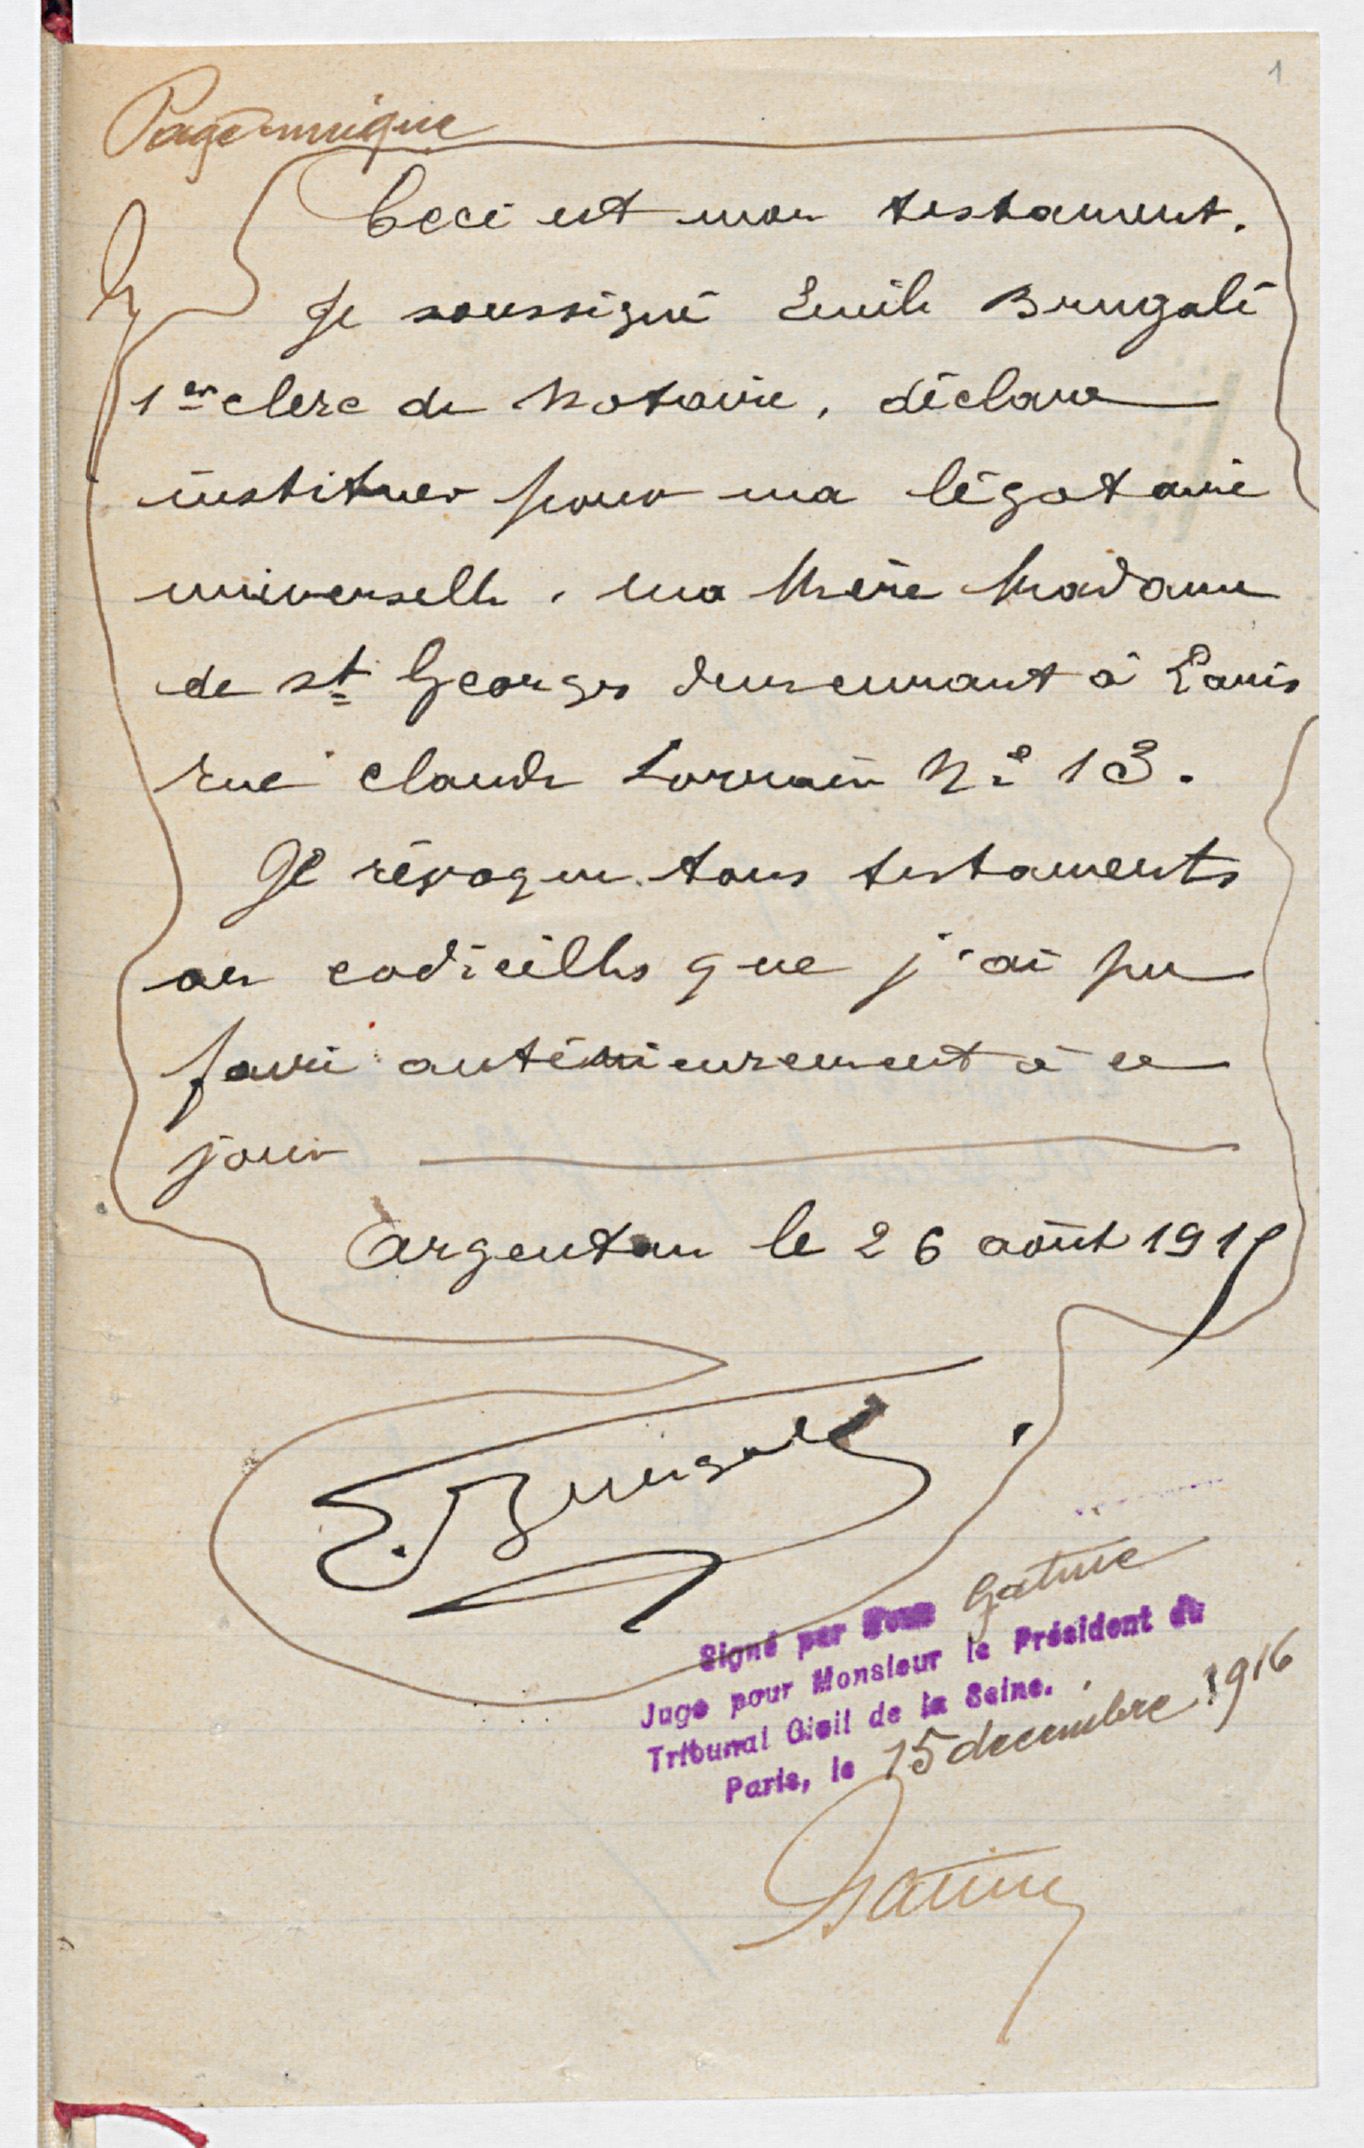 1
Page unique
Ceci est mon testament.
Je soussigné Emile Brugalé
1er clerc de Notaire, déclare
instituer pour ma légataire
universelle, ma Mère Madame
de St Georges demeurant à Paris
rue Claude Lorrain No 13.
Je révoque tous testaments
ou codicilles que j'ai pu
faire antérieurement à ce
jour
Argentan le 26 août 1915
E. Brugalé
Signé par Nous Gatine
Juge pour Monsieur le Président du
Tribunal Civil de la Seine.
Paris, le 15 decembre 1916
Gatine